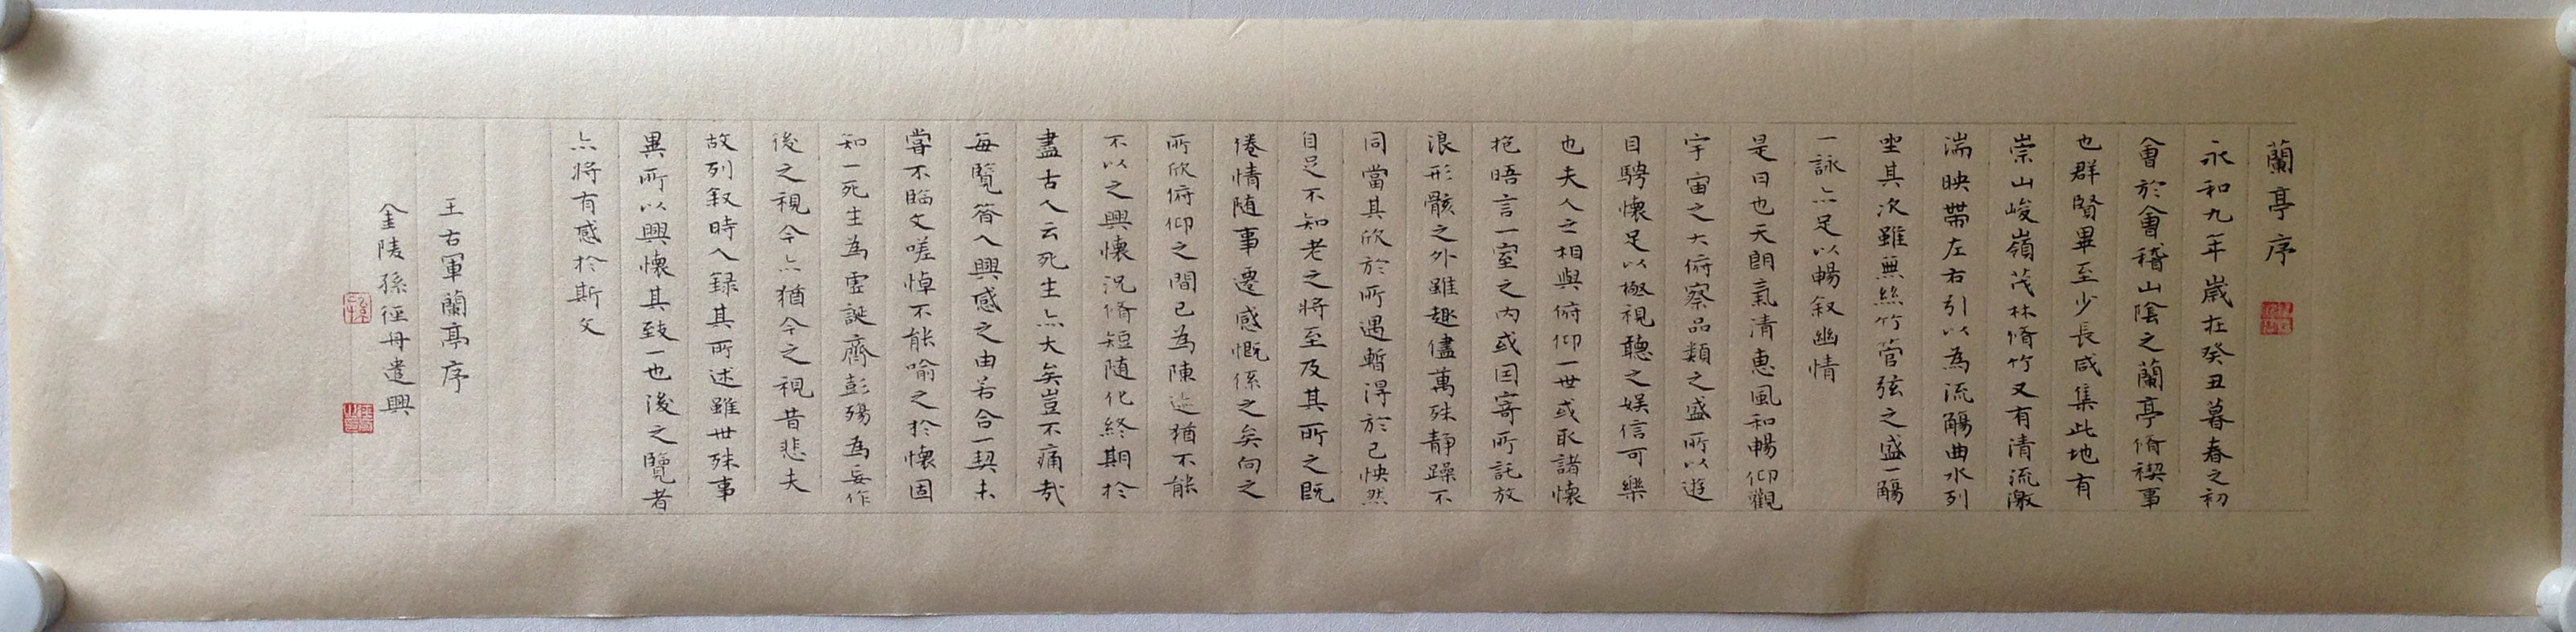 蘭亭序
永和九年歲在癸丑暮春之初
會於會稽山陰之蘭亭脩禊事
也群賢畢至少長咸集此地有
崇山峻嶺茂林脩竹又有清流激
湍映帶左右引以為流觴曲水列
坐其次雖無絲竹管弦之盛一觴
一詠亦足以暢叙幽情
是日也天朗氣清惠風和暢仰觀
宇宙之大俯察品類之盛所以遊
目騁懷足以極視聽之娛信可樂
也夫人之相與俯仰一世或取諸懷
抱晤言一室之内或因寄所託放
浪形骸之外雖趣儘萬殊静躁不
同當其欣於所遇暫得於己怏然
自足不知老之将至及其所之既
倦情随事遷感慨係之矣向之
所欣俯仰之間已為陳迹猶不能
不以之興懷況脩短随化終期於
盡古人云死生亦大矣豈不痛哉
每覽昔人興感之由若合一契未
嘗不臨文嗟悼不能喻之於懷固
知一死生為虛誕齊彭殤為妄作
後之視今亦猶今之視昔悲夫
故列叙時人録其所述雖世殊事
異所以興懷其致一也後之覽者
亦将有感於斯文
王右軍蘭亭序
金陵孫徑舟遣興